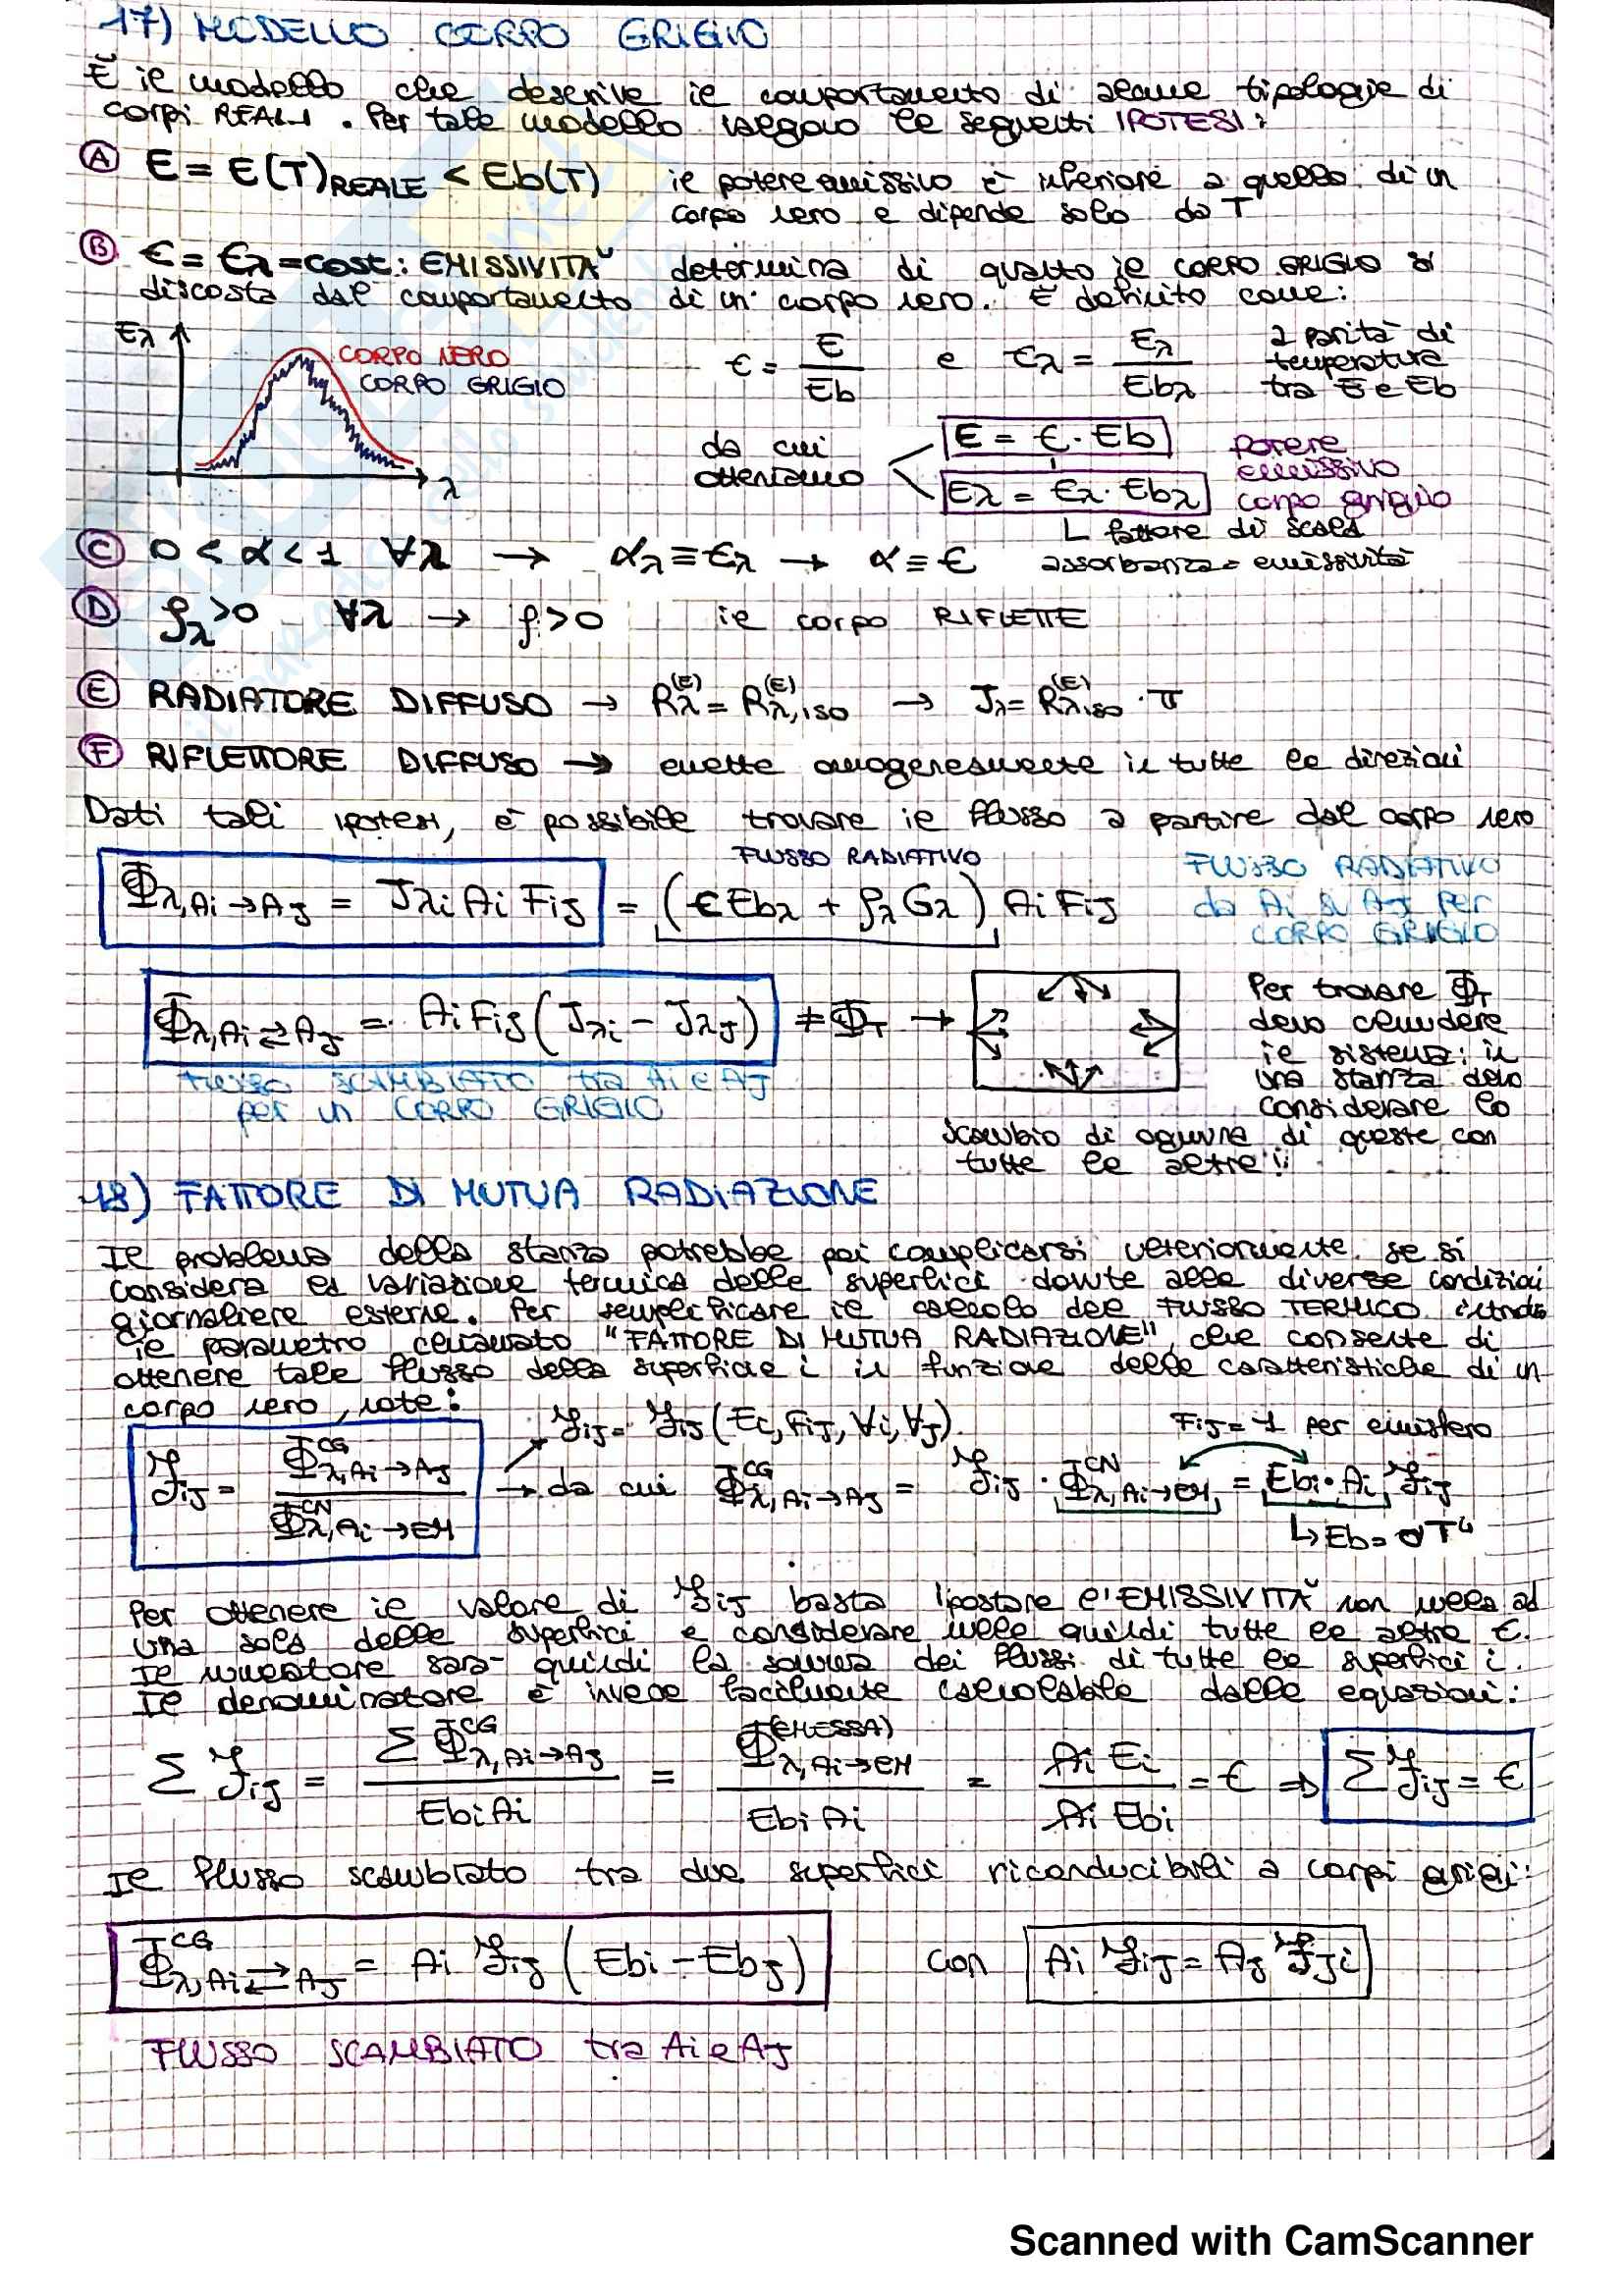 17) MODELLO CORPO GRIGIO
È il modello che descrive il comportamento di alcune tipologie di
corpi REALI. Per tale modello valgono le seguenti IPOTESI:
Ⓐ E = E(T)REALE < Eb(T) il potere emissivo è inferiore a quello di un
corpo nero e dipende solo da T
Ⓑ ϵ = ϵλ = cost: EMISSIVITÀ determina di quanto il CORPO GRIGIO si
discosta dal comportamento di un corpo nero. È definito come:
Eλ
CORPO NERO
CORPO GRIGIO
λ
ϵ = E/Eb e ϵλ = Eλ/Ebλ
a parità di
temperatura
tra E e Eb
da cui
otteniamo
E = ϵ · Eb
Eλ = ϵλ · Ebλ
potere
emissivo
corpo grigio
fattore di scala
Ⓒ 0 < α < 1 ∀λ → αλ ≡ ϵλ → α ≡ ϵ assorbanza = emissività
Ⓓ ρλ > 0 ∀λ → ρ > 0 il corpo RIFLETTE
Ⓔ RADIATORE DIFFUSO → Rλ(E) = Rλ,ISO(E) → Jλ = Rλ,ISO(E) · π
Ⓕ RIFLETTORE DIFFUSO → emette omogeneamente in tutte le direzioni
Dati tali ipotesi, è possibile trovare il flusso a partire dal corpo nero
FLUSSO RADIATIVO
Φλ,Ai→Aj = Jλi Ai Fij = (ϵEbλ + ρλGλ) Ai Fij
FLUSSO RADIATIVO
da Ai su Aj per
CORPO GRIGIO
Φλ,Ai⇄Aj = Ai Fij (Jλi − Jλj) ≠ ΦT →
FLUSSO SCAMBIATO tra Ai e Aj
per un CORPO GRIGIO
Per trovare ΦT
devo chiudere
il sistema: in
una stanza devo
considerare lo
scambio di ognuna di queste con
tutte le altre!!
18) FATTORE DI MUTUA RADIAZIONE
Il problema della stanza potrebbe poi complicarsi ulteriormente se si
considera la variazione termica delle superfici dovute alle diverse condizioni
giornaliere esterne. Per semplificare il calcolo del FLUSSO TERMICO introdo
il parametro chiamato "FATTORE DI MUTUA RADIAZIONE", che consente di
ottenere tale flusso della superficie i in funzione delle caratteristiche di un
corpo nero, note:
ℱij = Φλ,Ai→Aj^CG / Φλ,Ai→EM^CN
ℱij = ℱij (Ei, Fij, ∀i, ∀j)
Fij = 1 per emisfero
→ da cui Φλ,Ai→Aj^CG = ℱij · Φλ,Ai→EM^CN = Ebi · Ai ℱij
↳ Eb = σT⁴
Per ottenere il valore di ℱij basta ipostare l'EMISSIVITÀ non nulla ad
una sola delle superfici e considerare nulle quindi tutte le altre ϵ.
Il numeratore sarà quindi la somma dei flussi di tutte le superfici i.
Il denominatore è invece facilmente calcolabile dalle equazioni:
Σ ℱij = Σ Φλ,Ai→Aj^CG / Ebi Ai = Φλ,Ai→EM^(EMESSA) / Ebi Ai = Ai Ei / Ai Ebi = ϵ ⇒ Σ ℱij = ϵ
Il flusso scambiato tra due superfici riconducibili a corpi grigi:
Φλ,Ai⇄Aj^CG = Ai ℱij (Ebi − Ebj) con Ai ℱij = Aj ℱji
FLUSSO SCAMBIATO tra Ai e Aj
Scanned with CamScanner